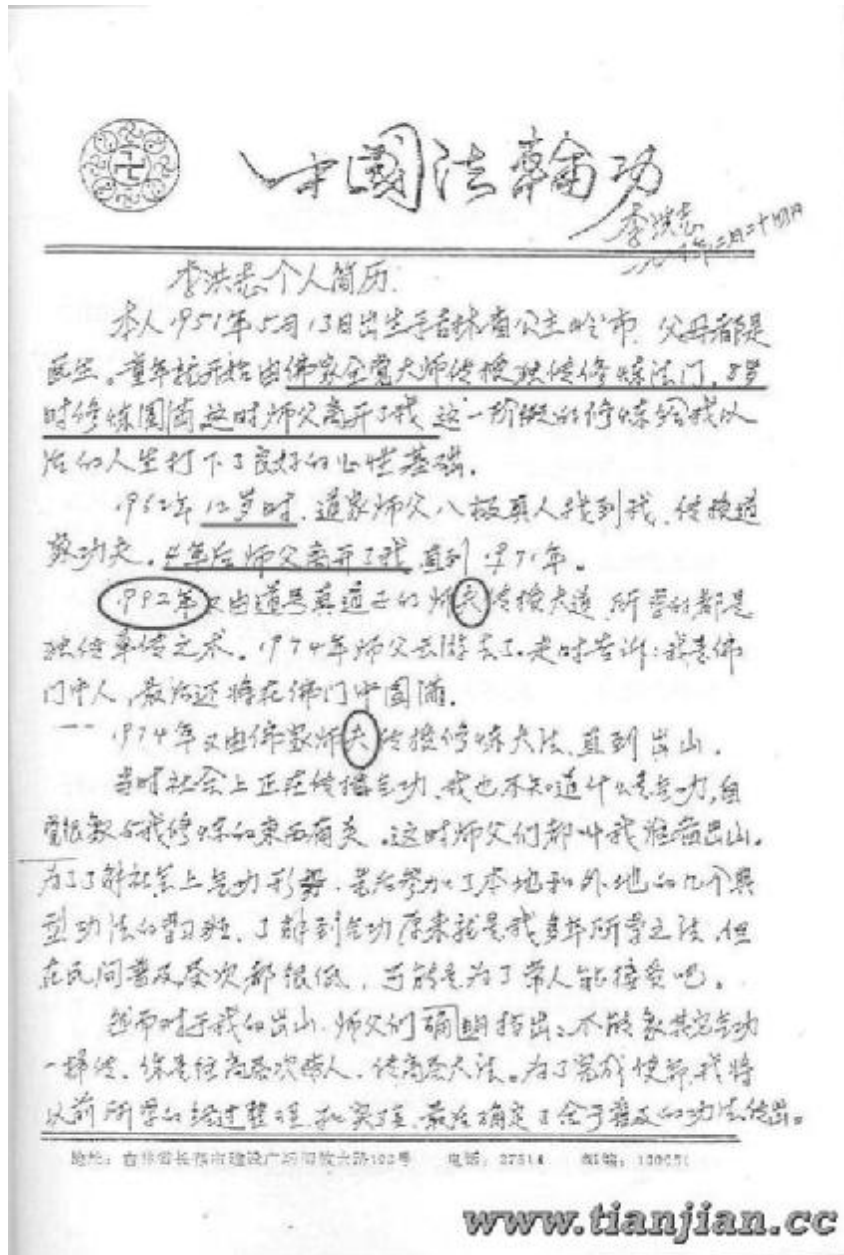 中國法輪功
李洪志
李洪志个人简历
本人1951年5月13日出生于吉林省公主岭市 父母都是
医生。童年就开始由佛家全觉大师传授独传修炼法门,8岁
时修炼圆满,这时师父离开了我 这一阶段的修炼给我以
后的人生打下了良好的心性基础.
12岁时.道家师父八极真人找到我,传授道
家功夫.4年后师父离开了我,直到1971年。
1992年又由道号真道子的师夫传授大道,所学的都是
独传单传之术。1974年师父云游去了.走时告诉:我是佛
门中人,最后还将在佛门中圆满.
1974年又由佛家师夫传授修炼大法,直到出山.
当时社会上正在传播气功,我也不知道什么是气功,自
觉很象与我修炼的东西有关.这时师父们都叫我准备出山.
为了了解社会上气功形势.先后参加了本地和外地的几个典
型功法的学习班,了解到气功原来就是我多年所学之法,但
在民间普及层次都很低,可能是为了常人能接受吧。
然而对于我的出山,师父们明确指出:不能象其它气功
一样传.你是往高层次带人.传高层大法。为了完成使命,我将
以前所学的经过整理 最后确定了合于普及的功法传出。
地址:吉林省长春市建设广场解放大路102号 电话:27514 邮编:
www.tianjian.cc